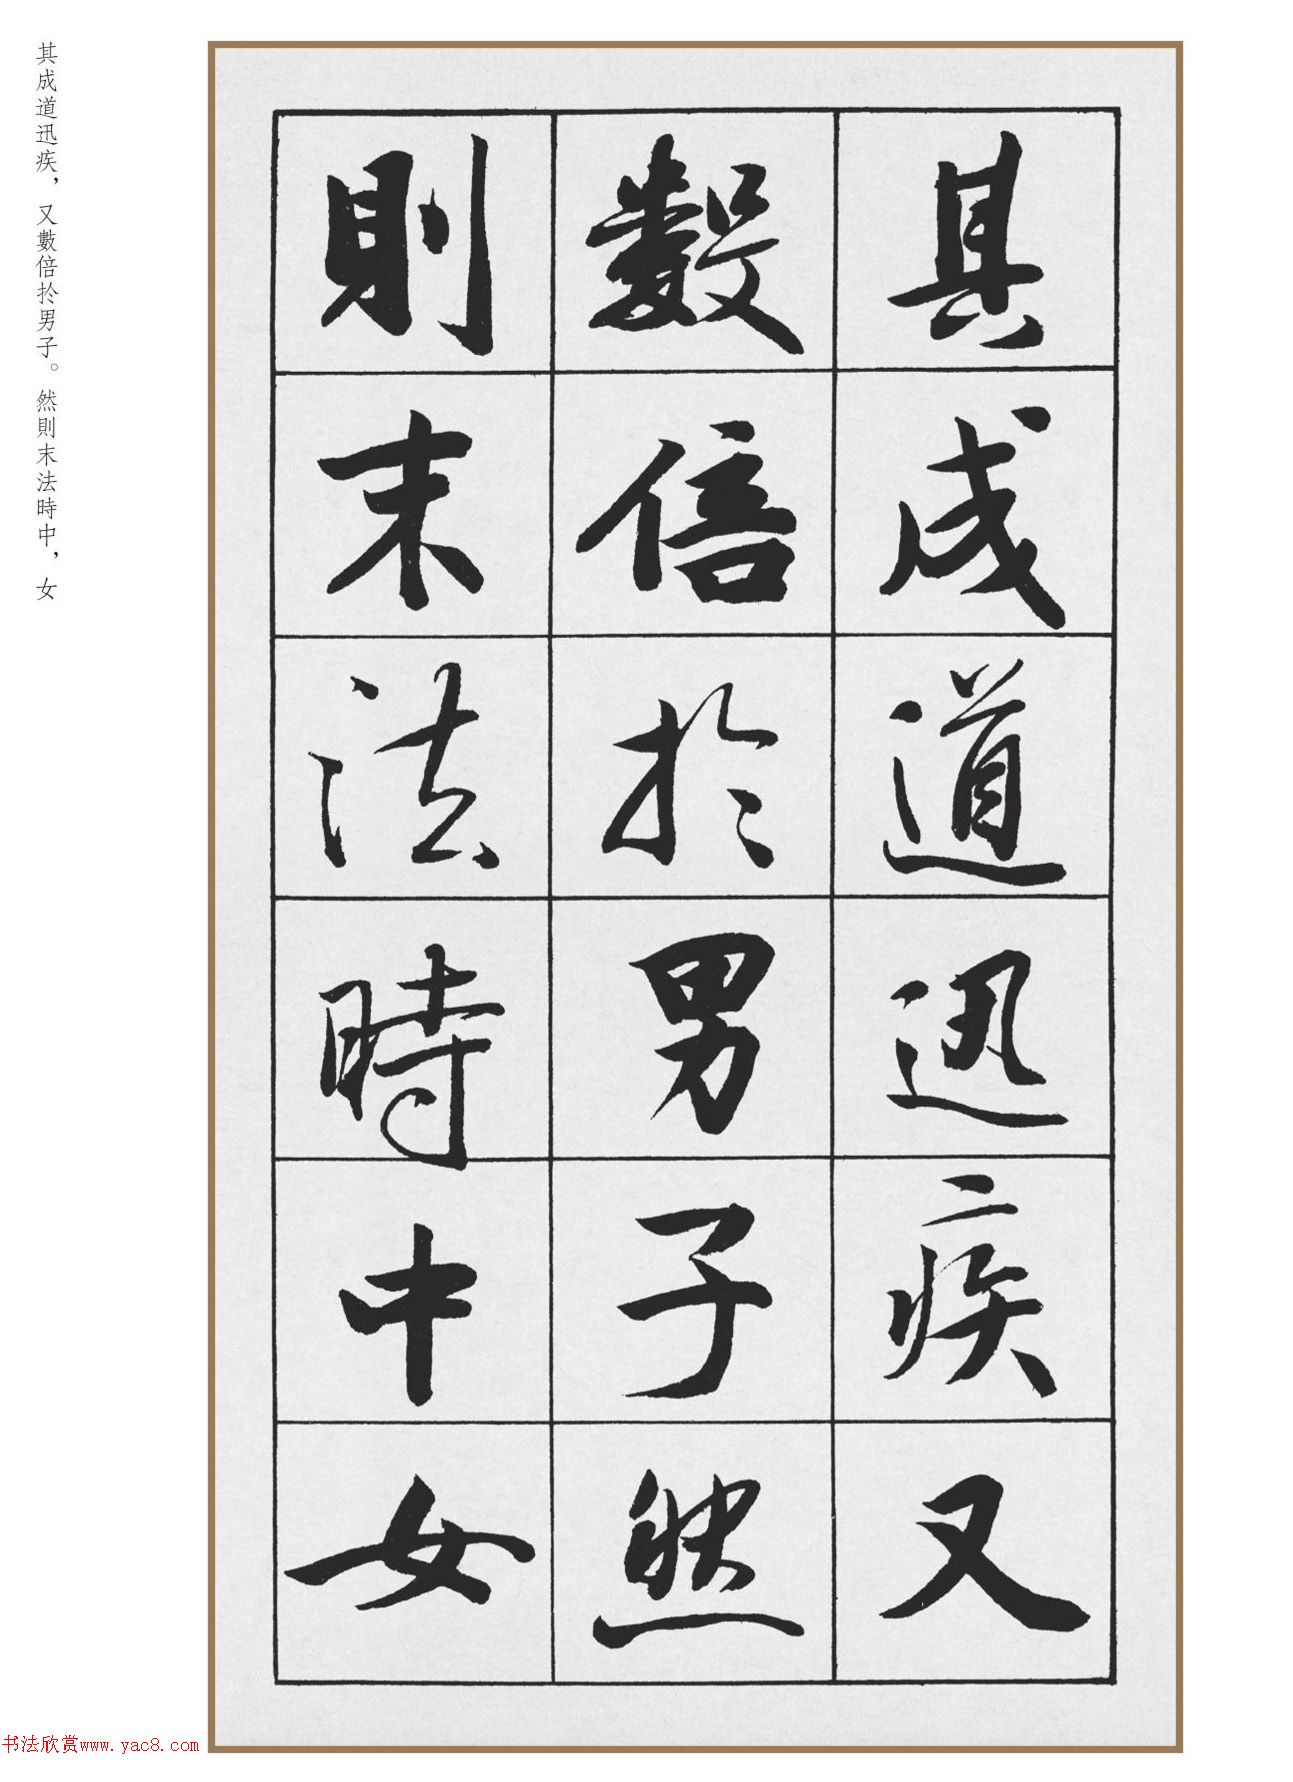 其成道迅疾又
數倍於男子然
則末法時中女
其成道迅疾，又數倍於男子。然則末法時中，女
书法欣赏www.yac8.com